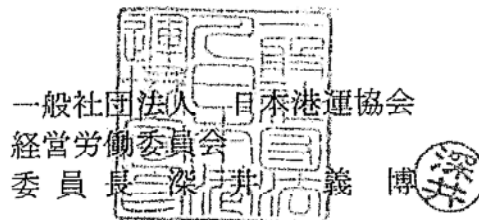 一般社団法人 日本港運協会
経営労働委員会
委員長 深井 義博
深井